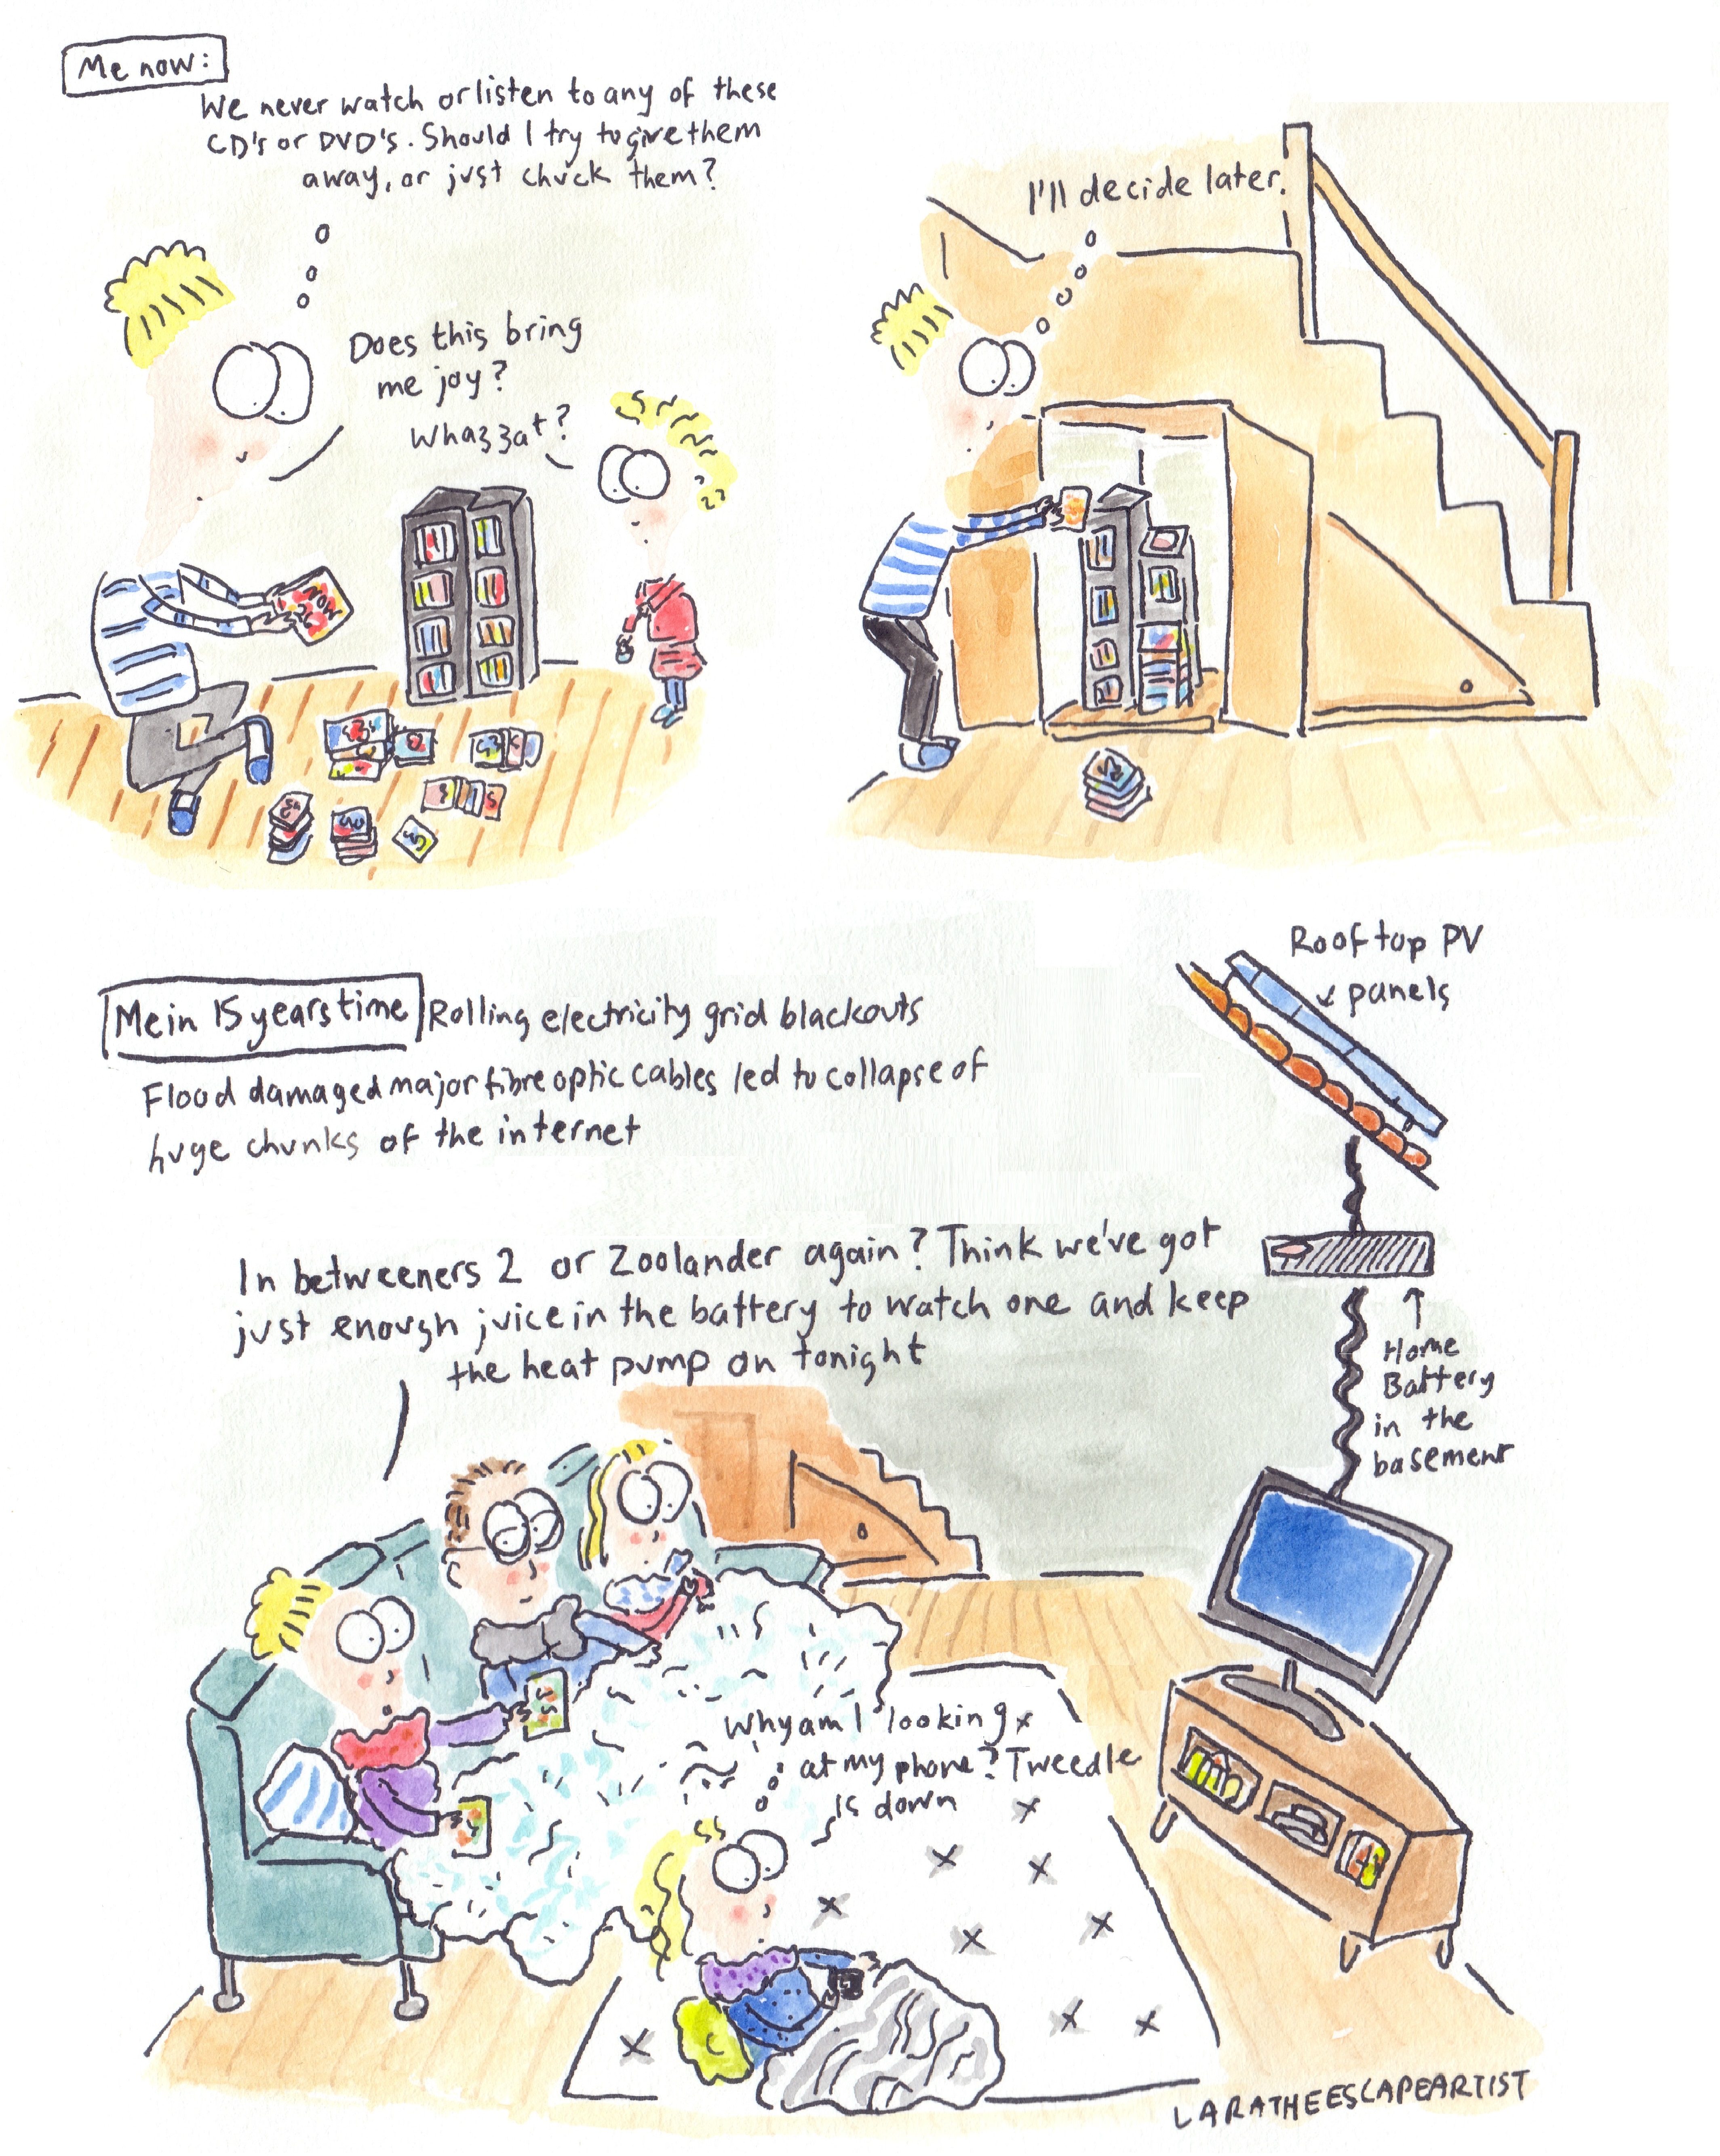 Me now:
We never watch or listen to any of these
CD's or DVD's. Should I try to give them
away, or just chuck them?
Does this bring
me joy?
Whazzat?
NOW
I'll decide later.
Me in 15 years time
Rolling electricity grid blackouts
Flood damaged major fibre optic cables led to collapse of
huge chunks of the internet
Rooftop PV
panels
In betweeners 2 or Zoolander again? Think we've got
just enough juice in the battery to watch one and keep
the heat pump on tonight
Home
Battery
in the
basement
Why am I looking
at my phone? Tweedle
is down
LARATHEESCAPEARTIST